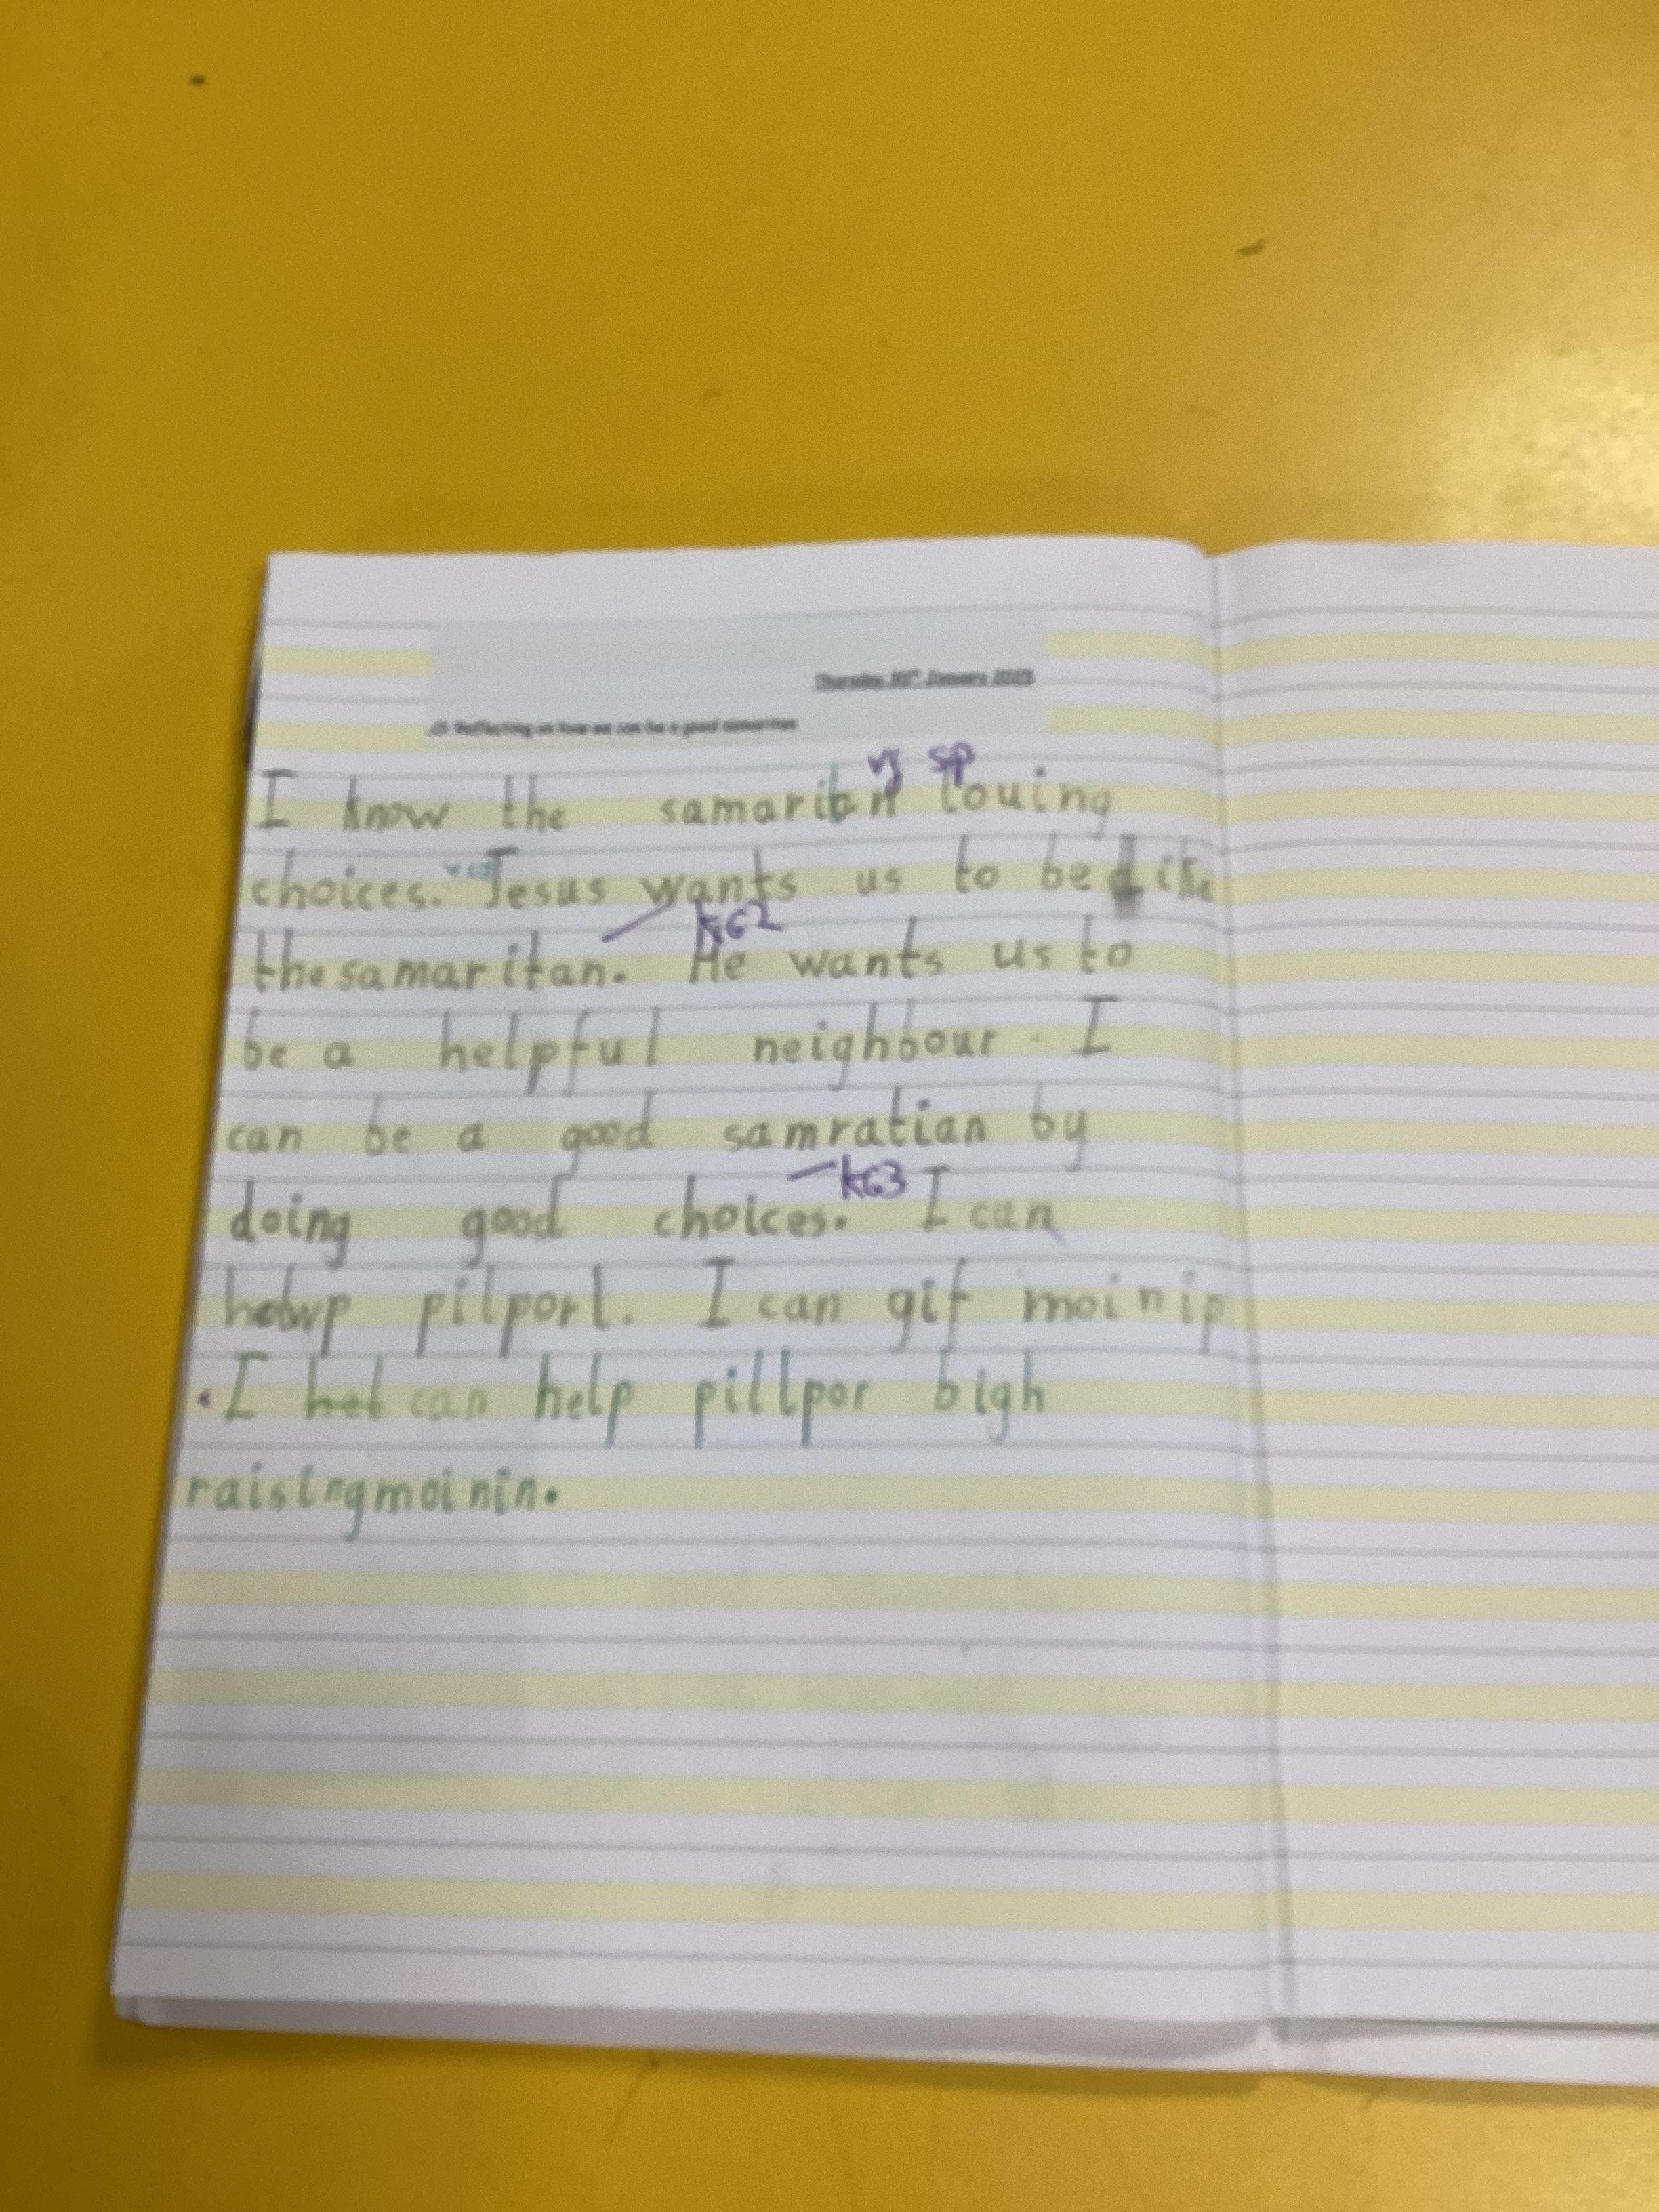 Thursday 30th January 2025
LO: Reflecting on how we can be a good samaritan
vf sp
I know the samaritan louing
choices. Jesus wants us to be like
KG2
the samaritan. He wants us to
be a helpful neighbour. I
can be a good samratian by
KG3
doing good choices. I can
pilporl. I can gif moinip
. I hel can help pillpor bigh
raisingmoinin.